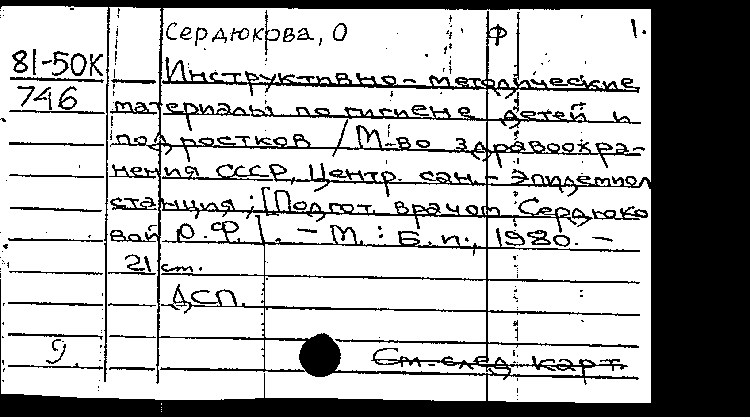 Сердюкова, О Ф 1.
81-50К Инструктивно-методические
746 материалы по гигиене детей и
подростков / М-во здравоохра-
нения СССР, Центр. сан.-эпидемиол
станция; [Подгот. врачом Сердюко
вой О.Ф.]. – М. : Б. и., 1980. –
21 ст.
ДСП.
9. См. след карт.